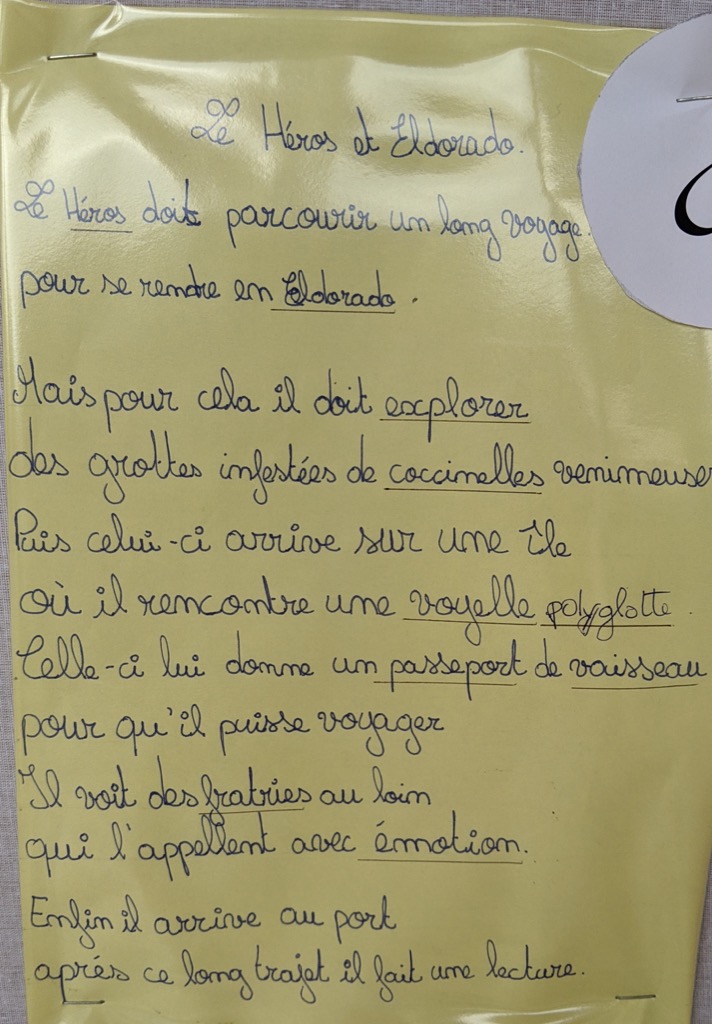 Le Héros et Eldorado.
Le Héros doit parcourir un long voyage.
pour se rendre en Eldorado.
Mais pour cela il doit explorer
des grottes infestées de coccinelles venimeuses
Puis celui-ci arrive sur une île
où il rencontre une voyelle polyglotte.
Celle-ci lui donne un passeport de vaisseau
pour qu'il puisse voyager
Il voit des fratries au loin
qui l'appellent avec émotion.
Enfin il arrive au port
après ce long trajet il fait une lecture.